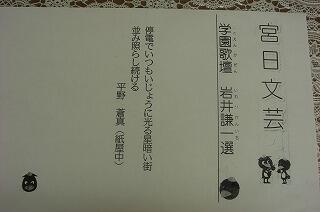 宮日文芸
学園歌壇 岩井謙一選
停電でいつもいじょうに光る星暗い街
並み照らし続ける
平野 蒼真（紙屋中）